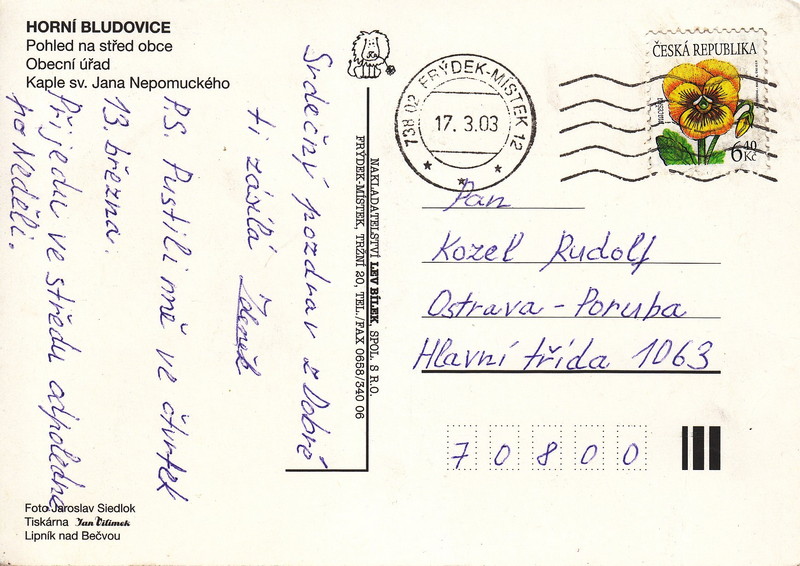 HORNÍ BLUDOVICE
Pohled na střed obce
Obecní úřad
Kaple sv. Jana Nepomuckého
Srdečný pozdrav z Dobré
ti zasílá Zdeněk
P.S. Pustili mě ve čtvrtek
13. března.
Přijedu ve středu odpoledne
po neděli.
Foto Jaroslav Siedlok
Tiskárna Jan Vilímek
Lipník nad Bečvou
NAKLADATELSTVÍ LEV BÍLEK, SPOL. S R.O.
FRÝDEK-MÍSTEK, TRŽNÍ 20, TEL./FAX 0658/340 06
738 02 FRÝDEK-MÍSTEK 12
17. 3. 03
ČESKÁ REPUBLIKA
6,40
Kč
Pan
Kozel Rudolf
Ostrava - Poruba
Hlavní třída 1063
70800